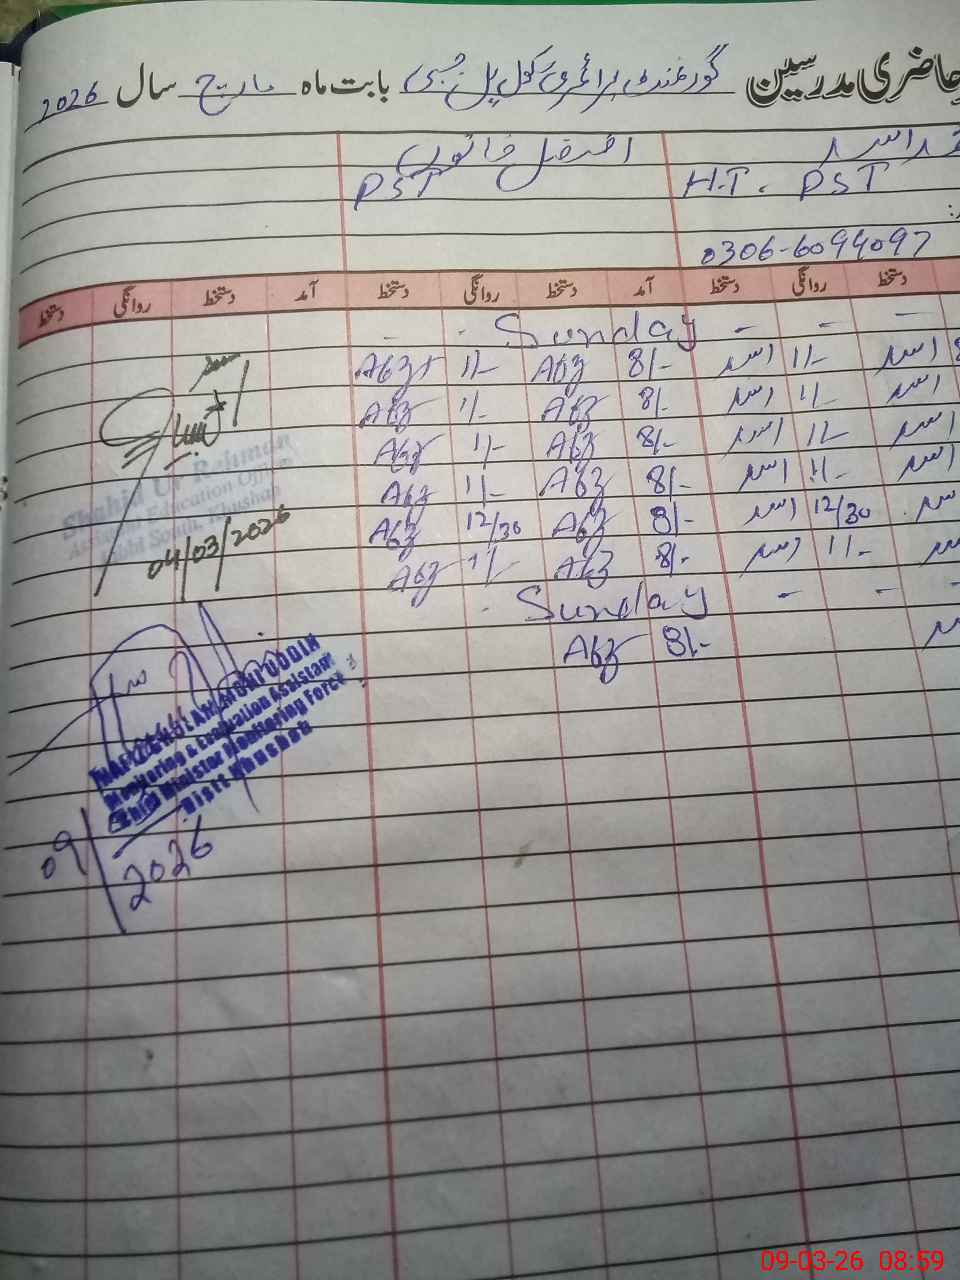 حاضری مدرسین گورنمنٹ پرائمری سکول پل جبی بابت ماہ مارچ سال 2026
اسد افضل خاتون
H.T. PST PST
0306-6094097
دستخط روانگی دستخط آمد دستخط روانگی دستخط آمد دستخط روانگی دستخط
- - - Sunday - -
اسد 1/- اسد 8/- Abz 1/- Abz
اسد 1/- اسد 8/- Abz 1/- Abz
اسد 1/- اسد 8/- Abz 1/- Abz
اسد 1/- اسد 8/- Abz 1/- Abz
اسد 12/30 اسد 8/- Abz 12/30 Abz
اسد 1/- اسد 8/- Abz 1/- Abz
- - - Sunday -
8/- Abz
Shahid Ur Rehman
Assistant Education Officer
South, Khushab
04/03/2026
Monitoring & Evaluation Assistant
Chief Minister Monitoring Force
Distt Khushab
09/2026
09-03-26 08:59